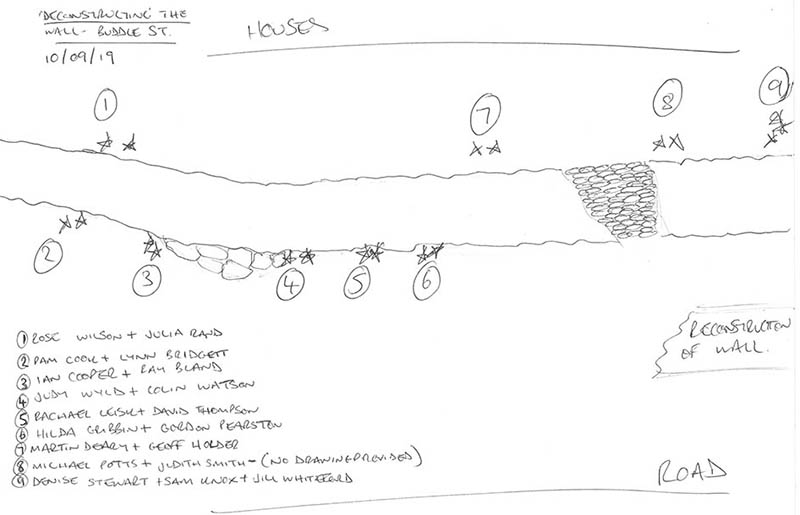 'DECONSTRUCTING' THE
WALL - BUDDLE ST.
10/09/19
HOUSES
1
7
8
9
2
3
4
5
6
RECONSTRUCTION
OF WALL.
① ROSE WILSON + JULIA RAND
② PAM COOK + LYNN BRIDGETT
③ IAN COOPER + RAY BLAND
④ JUDY WYLD + COLIN WATSON
⑤ RACHAEL LEISK + DAVID THOMPSON
⑥ HILDA GRIBBIN + GORDON PEARSTON
⑦ MARTIN DEARY + GEOFF HOLDER
⑧ MICHAEL POTTS + JUDITH SMITH - (NO DRAWING PROVIDED)
⑨ DENISE STEWART + SAM KNOX + JILL WHITEFORD
ROAD